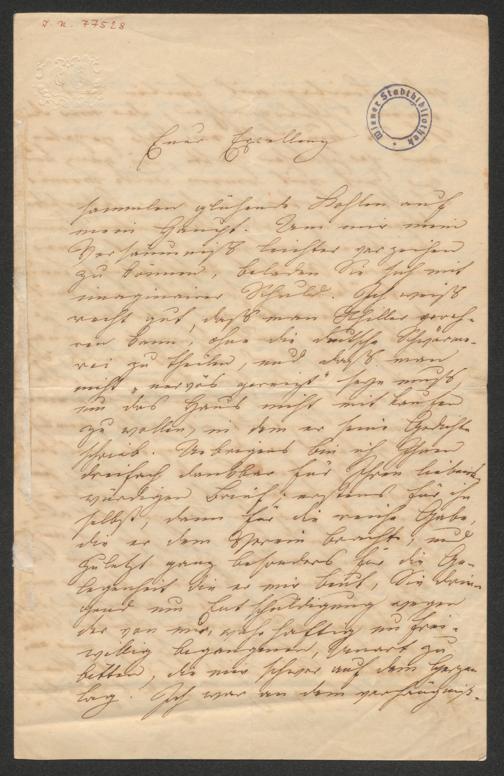 J. N. 77528
Wiener Stadtbibliothek
Euer Excellenz
sammeln glühende Kohlen auf
mein Haupt. Um mir mein
Versäumniß leichter verzeihen
zu können, beladen Sie sich mit
imaginairer Schuld. Ich weiß
recht gut, daß man Schiller vereh-
ren kann, ohne die deutsche Schwärme-
rei zu theilen, und daß man
nicht „nervos gereizt" seyn muß,
um das Haus nicht mit kaufen
zu wollen, in dem er seine Gedichte
schrieb. Uebrigens bin ich Ihnen
dreifach dankbar für Ihren liebens-
würdigen Brief: erstens für ihn
selbst, dann für die reiche Gabe,
die er dem Verein bracht, und
zuletzt ganz besonders für die Ge-
legenheit die er mir beut, Sie drin-
gend um Entschuldigung wegen
der von mir, wahrhaftig unfrei-
willig begangenen, Unart zu
bitten, die mir schwer auf dem Herzen
lag. Ich war an dem verhängniß-